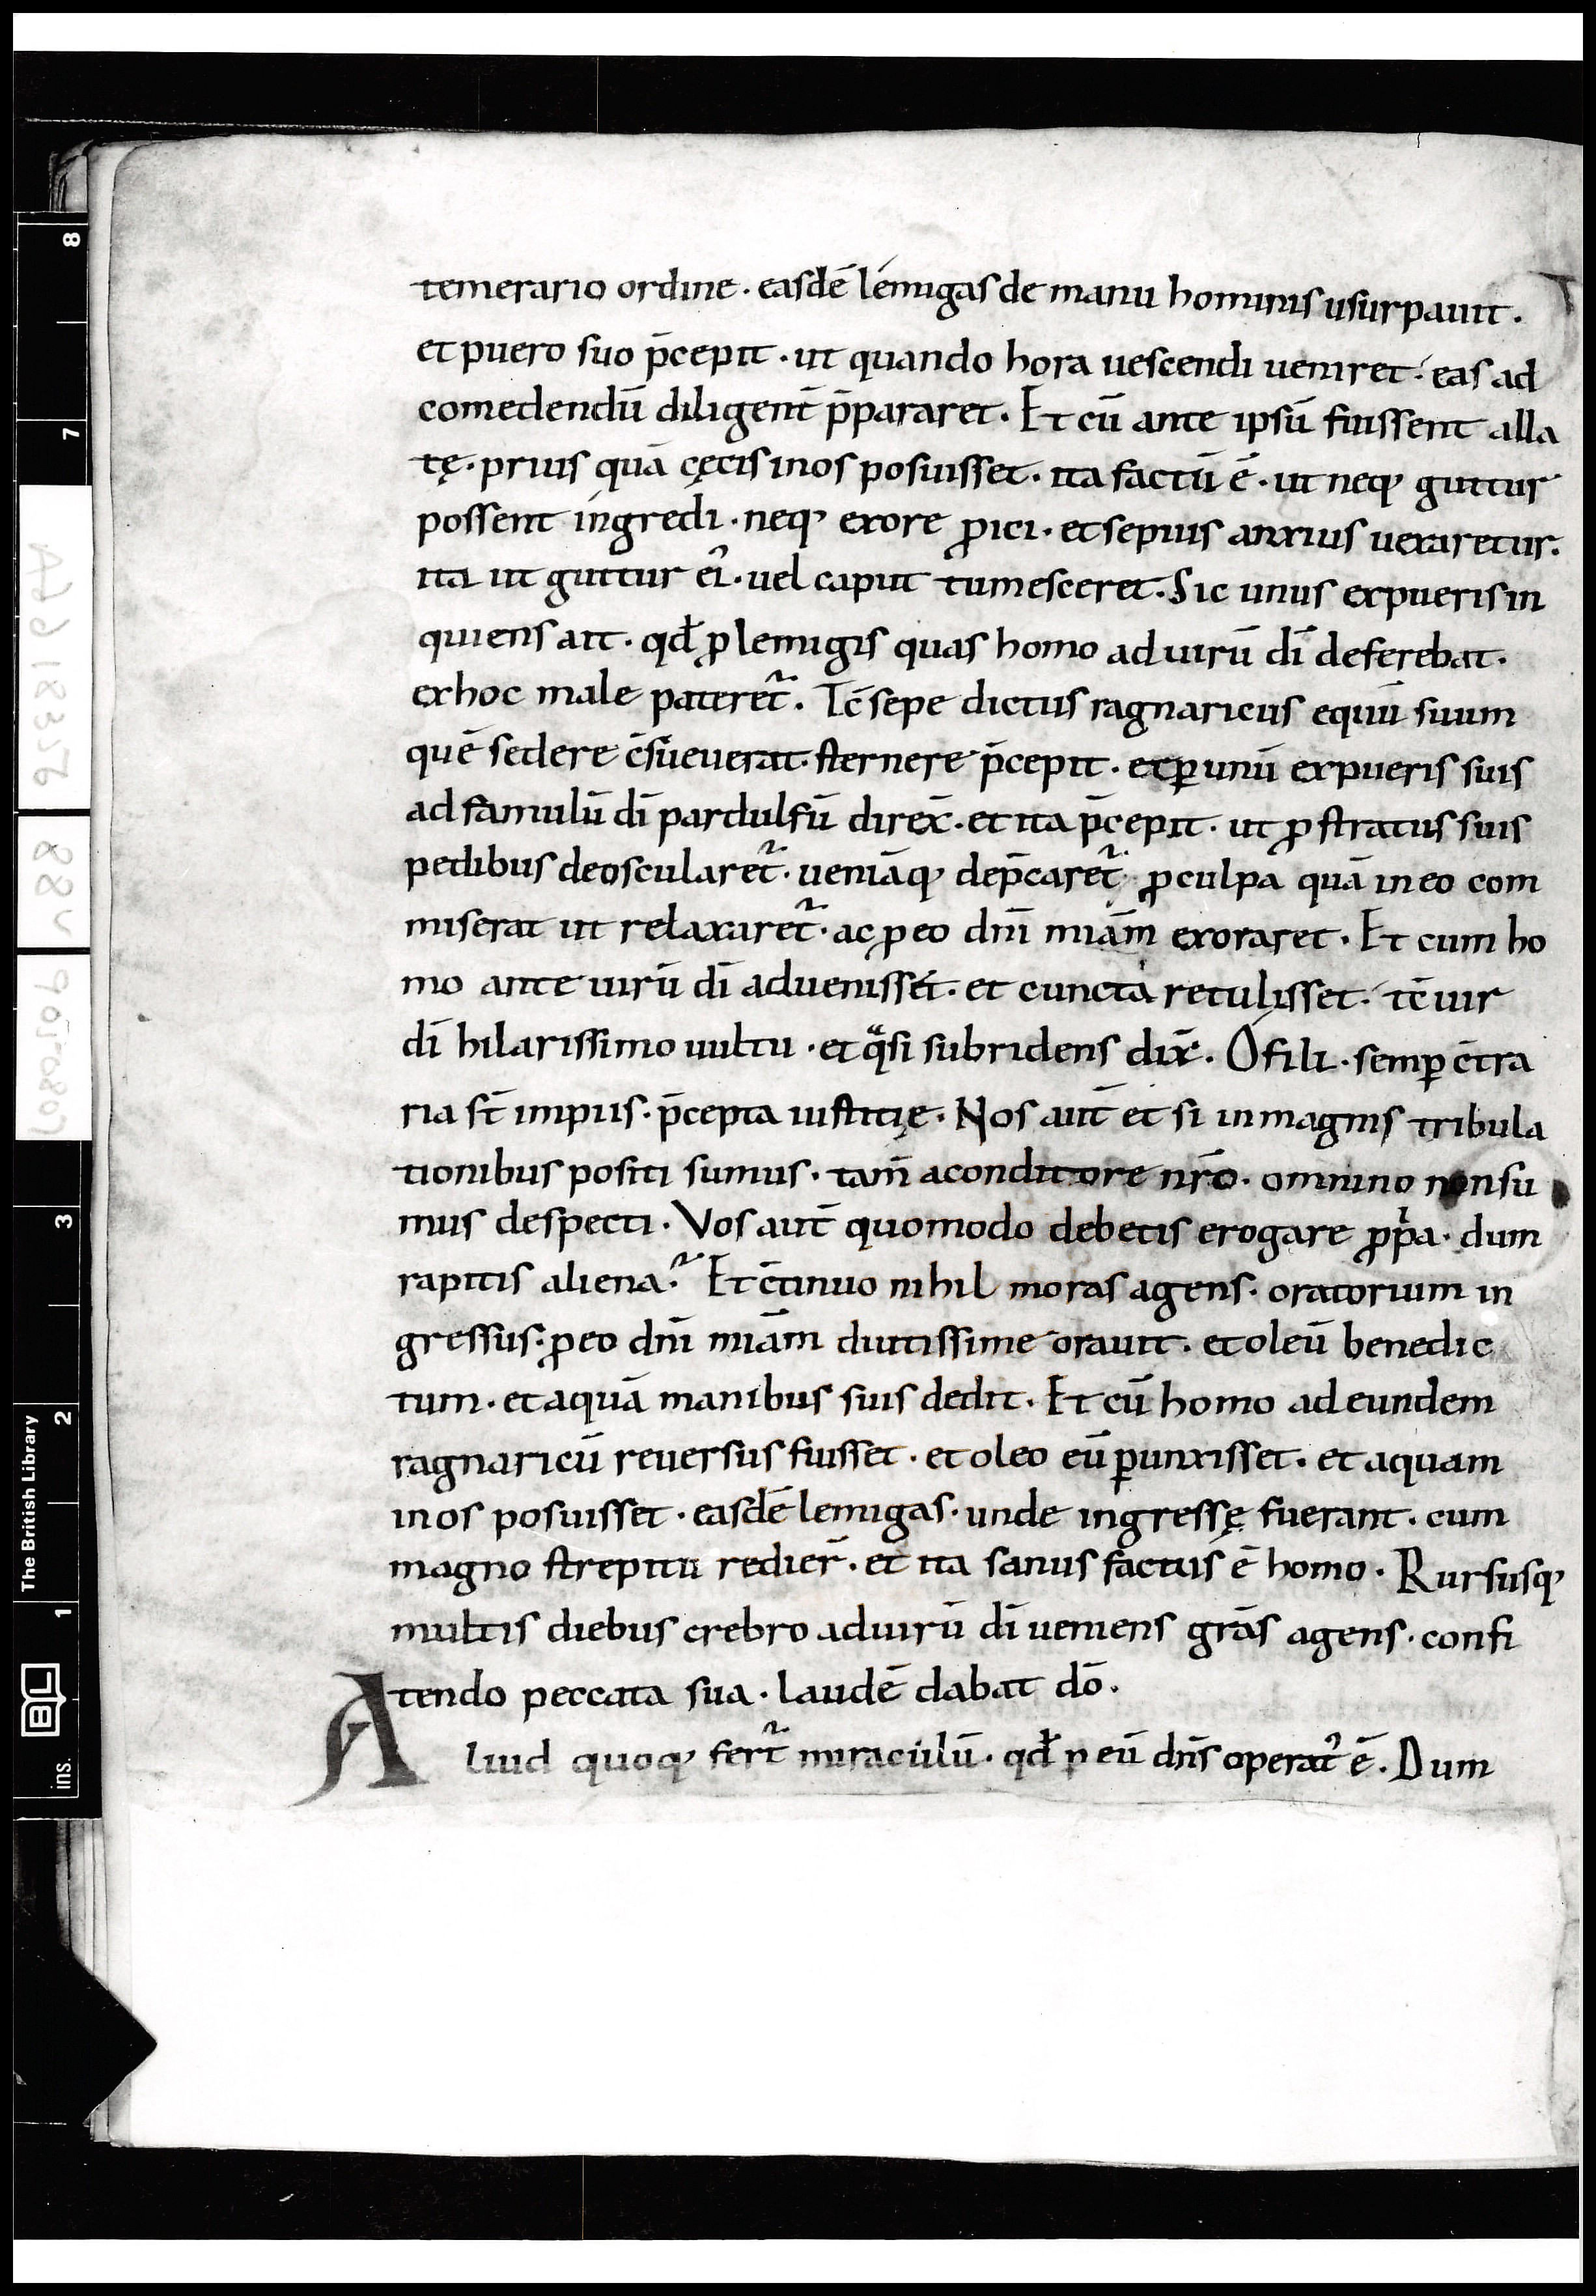 temerario ordine · easdē lemigas de manu hominis usurpauit ·
et puero suo p̄cepit · ut quando hora uescendi ueniret · eas ad
comedendū diligent̄ p̄pararet · Et cū ante ipsū fuissent alla
tę · prius quā cęcis inos posuisset · ita factū ē · ut neq; guttur
possent ingredi · neq; exore ꝓici · et sepius anxius uexaretur ·
ita ut guttur ei᾽ · uel caput tumesceret · Sic unus expueris in
quiens ait · qđ ꝓ lemigis quas homo ad uirū dī deferebat ·
exhoc male pateret᷑ · Tc̄ sepe dictus ragnaricus equū suum
quē sedere c̄sueuerat · sternere p̄cepit · et ꝑ unū expueris suis
ad famulū dī pardulfū direx̄ · et ita p̄cepit · ut ꝓstratus suis
pedibus deoscularet᷑ · ueniāq; dep̄caret᷑ · ꝓ culpa quā in eo com
miserat ut relaxaret᷑ · ac ꝓ eo dnī miām exoraret · Et cum ho
mo ante uirū dī aduenisset · et cuncta retulisset · tc̄ uir
dī hilarissimo uultu · et qͣsi subridens dix̄ · O fili · semꝑ c̄tra
ria st̄ impiis · p̄cepta iustitię · Nos aut̄ et si in magnis tribula
tionibus positi sumus · tam̄ aconditore nr̄o · omnino non su
mus despecti · Vos aut̄ quomodo debetis erogare ꝓpͥa · dum
rapitis aliena? Et c̄tinuo nihil moras agens · oratorium in
gressus · ꝓ eo dnī miām diutissime orauit · et oleū benedic
tum · et aquā manibus suis dedit · Et cū homo ad eundem
ragnaricū reuersus fuisset · et oleo eū ꝑunxisset · et aquam
inos posuisset · easdē lemigas · unde ingressę fuerant · cum
magno strepitu redier̄ · et ita sanus factus ē homo · Rursusq;
multis diebus crebro aduirū dī ueniens grās agens · confi
tendo peccata sua · laudē dabat dō ·
Aliud quoq; fert᷑ miraculū · qđ ꝑ eū dn̄s operat᾽ ē · Dum
8
7
Add 18376
88v
905-0807
3
2
1
The British Library
BL
ins.